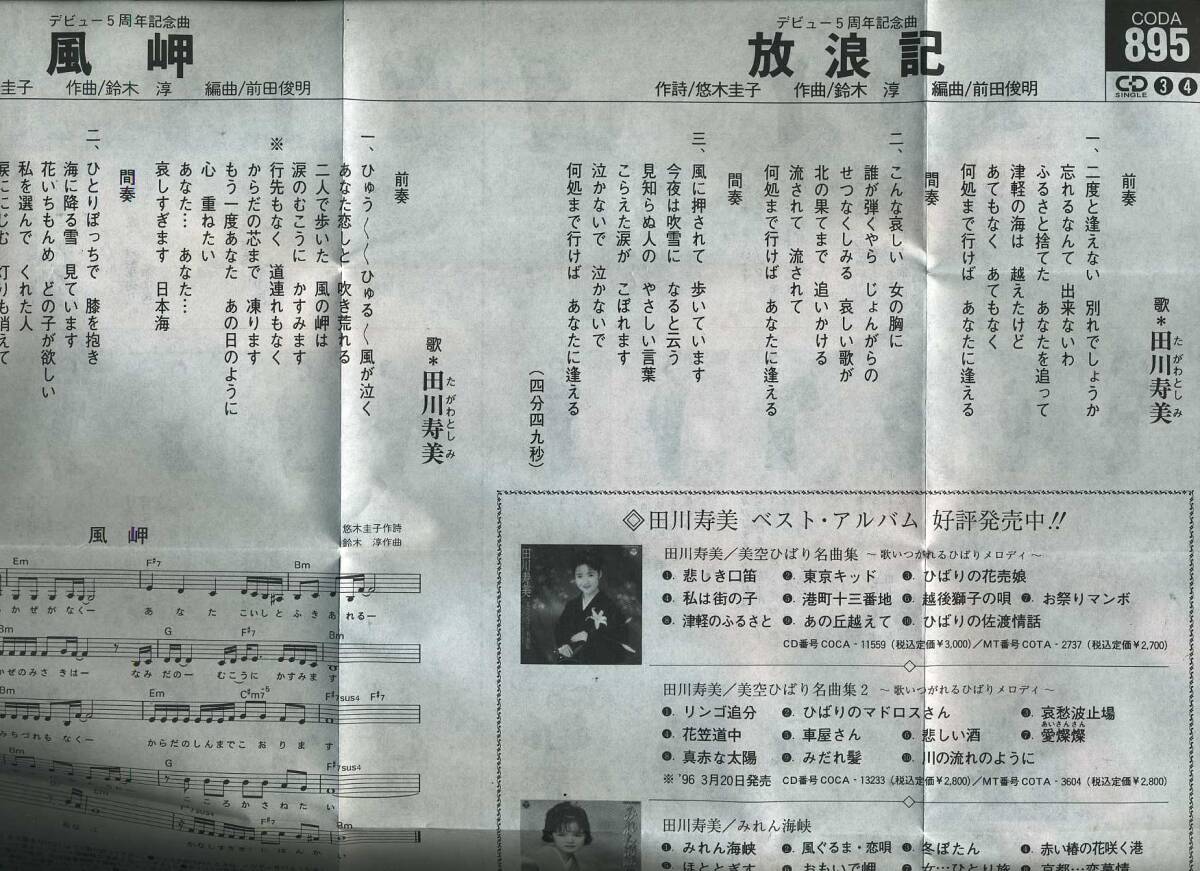 CODA
895
CD SINGLE ③④
デビュー5周年記念曲
放浪記
作詩/悠木圭子 作曲/鈴木 淳 編曲/前田俊明
歌*田川寿美
たがわとしみ
前奏
一、二度と逢えない 別れでしょうか
忘れるなんて 出来ないわ
ふるさと捨てた あなたを追って
津軽の海は 越えたけど
あてもなく あてもなく
何処まで行けば あなたに逢える
間奏
二、こんな哀しい 女の胸に
誰が弾くやら じょんがらの
せつなくしみる 哀しい歌が
北の果てまで 追いかける
流されて 流されて
何処まで行けば あなたに逢える
間奏
三、風に押されて 歩いています
今夜は吹雪に なると云う
見知らぬ人の やさしい言葉
こらえた涙が こぼれます
泣かないで 泣かないで
何処まで行けば あなたに逢える
(四分四九秒)
デビュー5周年記念曲
風岬
圭子 作曲/鈴木 淳 編曲/前田俊明
歌*田川寿美
たがわとしみ
前奏
一、ひゅう〜〜ひゅる〜風が泣く
あなた恋しと 吹き荒れる
二人で歩いた 風の岬は
涙のむこうに かすみます
※行先もなく 道連れもなく
からだの芯まで 凍ります
もう一度あなた あの日のように
心 重ねたい
あなた… あなた…
哀しすぎます 日本海
間奏
二、ひとりぼっちで 膝を抱き
海に降る雪 見ています
花いちもんめ どの子が欲しい
私を選んで くれた人
涙ににじむ 灯りも消えて
風岬
悠木圭子作詩
鈴木 淳作曲
Em F♯7 Bm
かぜがなくー あなた こいしとふきあれるー
Bm G F♯7 Bm
かぜのみさきはー なみだのー むこうに かすみます
Bm Em C♯m7-5 F♯7sus4 F♯7
みちづれも なくー からだのしんまでこおります
Bm G F♯7sus4
こころかさねたい
F♯7 Bm
かなしすぎます にほんかい
◇田川寿美 ベスト・アルバム 好評発売中!!
田川寿美/美空ひばり名曲集 〜歌いつがれるひばりメロディ〜
❶.悲しき口笛 ❷.東京キッド ❸.ひばりの花売娘
❹.私は街の子 ❺.港町十三番地 ❻.越後獅子の唄 ❼.お祭りマンボ
❽.津軽のふるさと ❾.あの丘越えて ❿.ひばりの佐渡情話
CD番号COCA-11559(税込定価¥3,000)/MT番号COTA-2737(税込定価¥2,700)
田川寿美/美空ひばり名曲集2 〜歌いつがれるひばりメロディ〜
❶.リンゴ追分 ❷.ひばりのマドロスさん ❸.哀愁波止場
❹.花笠道中 ❺.車屋さん ❻.悲しい酒 ❼.愛燦燦
あいさんさん
❽.真赤な太陽 ❾.みだれ髪 ❿.川の流れのように
※'96 3月20日発売 CD番号COCA-13233(税込定価¥2,800)/MT番号COTA-3604(税込定価¥2,800)
田川寿美/みれん海峡
❶.みれん海峡 ❷.風ぐるま・恋唄 ❸.冬ぼたん ❹.赤い椿の花咲く港
❺.ほととぎす ❻.おもいで岬 ❼.女…ひとり旅 ❽.京都…恋慕情